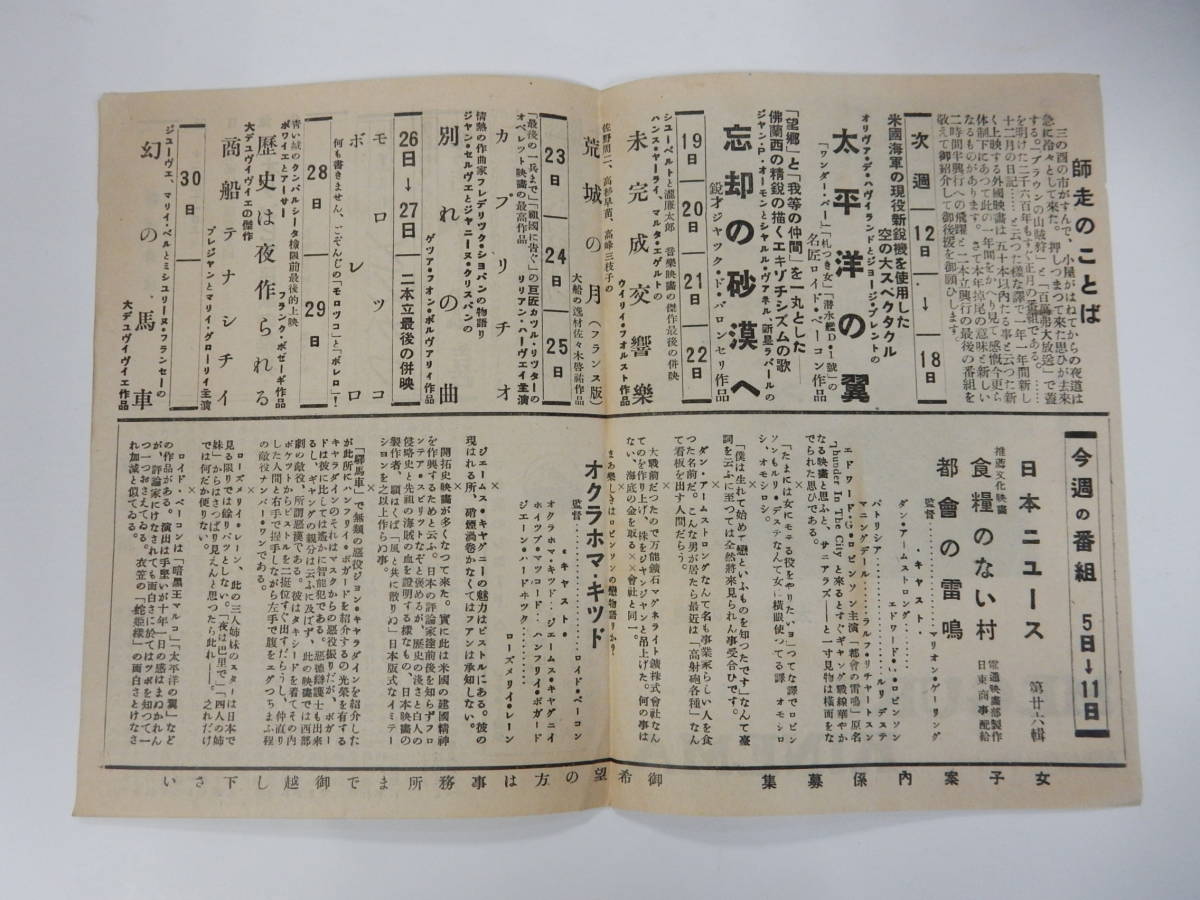 師走のことば
三の酉の市がすんで、小屋がはねてからの夜道は
急に冷々として来た。押しつまつて来た思ひが主来
する。「ブラウンの山賊狩」と「百萬弗大放送」で蓋
を明けた二千六百年もすぐ正月の番組である。……
十二月の日記……と云つた樣な譯で一年一年間新し
く上映する外國映畫は五十本以内たる事と云つた新
体制下にあつて此の一年間をかへり見て感慨今更ら
なるものがあります。さて本年掉尾の意味と新しい
二時間半興行への飛躍と二本立興行の最後の番組を
敢えて御紹介して御後援を御願ひします。
次週 12日→18日
米國海軍の現役新鋭機を使用した
空の大スペクタクル
オリヴァ・デ・ハヴイランドとジョージ・ブレントの
太平洋の翼
「ワンダー・バー」「札つき女」「潜水艦D・1號」の
名匠ロイド・ベーコン作品
「望郷」と「我等の仲間」を一丸とした
佛蘭西の精鋭の描くエキゾチシズムの歌
ジャン・P・オーモンとシャルル・ヴァネル・新星ラパールの
忘却の砂漠へ
鋭才ジャック・ド・バロンセリ作品
19日 20 21 22日
シューベルトと瀧廉太郎 音樂映畫の傑作最後の併映
ハンス・ヤーライ、マルタ・エゲルトの
未完成交響樂
ウイリイ・フオルスト作品
佐野周二、高杉早苗、高峰三枝子の
荒城の月(フランス版)
大船の逸材佐々木啓祐作品
23日 24 25日
「最後の一兵まで」「祖國に告ぐ」の巨匠カヴル・リッターの
オペレット映畫の最高作品
リリアン・ハーヴェイ主演
カプリチオ
情熱の作曲家フレデリック・ショパンの物語り
ジャン・セルヴェとジャニーヌ・クリスパンの
別れの曲
ゲツア・フオン・ボルヴアリイ作品
26日→27日 二本立最後の併映
モロッコ
ボレロ
何も書きません、ごぞんじの「モロツコ」と「ボレロ」!
28日 29日
青い城のクンパルシータ檢限前最後的上映
ボワイエとアーサー フランク・ボゼーギ作品
歷史は夜作られる
大デュヴイヴイエの傑作
商船テナシチイ
プレジャンとマリイ・グローリイ主演
30日
ジューヴェ、マリイ・ベルとミシュリーヌ・フランセーの
幻の馬車
大デユヴイヴイエ作品
今週の番組 5日→11日
日本ニユース 第廿六輯
推薦文化映畫
食糧のない村 電通映畫部製作 日東商事配給
都會の雷鳴
監督………マリオン・ゲーリング
・キャスト・
ダン・アームストロング……エドワード・G・ロビンソン
パトリシア……………ルリ・デステ
マニングデール……ラルフ・リチャートスン
エドワード・G・ロビンソン主演「都會の雷鳴」原名
Thunder In The City と來るとすぐギャング戰線華やか
なる映畫と思ふと、サ・アラズ――と一寸見物は橫面をな
でられた思ひである。
「たまには女にモテる役をやりたいヨ」つてな譯でロビン
ソンもルリ・デステなんて女に橫眼使つてる譯 オモシロ
シ、オモシロシ。
×
ダン・アームストロングなんて名も事業家らしい人を食
つた名前だ。こんな男が居たら最近は「高射砲各種」なん
て看板を出す人間だらう。
「僕は生れて始めて戀といふものを知つたです」なんて臺
詞を云ふに至つては全然將來見られん事受合ひです。
×
大戰前だつたので万能鑛石マグネライト鑛株式會社なん
てのを作り上げ、株をジャンジャンと吊上げた。何の事は
ない、海底の金を取る××會社と同一。
×
まあ樂しきはロビンソンの戀物語りか?
オクラホマ・キッド
監督…………ロイド・ベーコン
・キャスト・
オクラホマ・キッド……ジェームス・キャグニイ
ホイップ・マッコード……ハンフリイ・ボガード
ジェーン・ハードホック……ローズメリイ・レーン
ジェームス・キャグニーの魅力はピストルにある。彼の
現はれる所、硝煙渦巻かなくてはファンは承知しない。
×
開拓史映畫が多くなつて来た。實に此は米國の建國精神
を作興するためと云ふ。日本の評論家陸前後を知らずフロ
ンティア・スピリットなぞと褒めるが、歷史の淺さと白人の
侵略史と先祖の海賊の血を證明する樣なもの。日本映畫の
製作者、願はくば「風と共に散りぬ」日本版式なイミテー
シヨンを之以上作らぬ事。
×
「驛馬車」で無類の惡役ジョン・キャラダインを紹介した
が此所にハンフリイ・ボガードを紹介するの光榮を有する
キャラダインのそれはマスクからの惡役振りだが、ボガー
ドは彼に比しては遙かに智能犯である。惡德辯護士も出來
るし、ギャングの親分は云ふに及ばず、此の映畫では西部
劇の敵役、所謂惡漢である。彼はタキシードを着てその内
ポケットからピストルを二挺位すぐ出すだらうし、仲直り
した人間と右手で握手しながら左手で腹をエグつちまふ程
の敵役ナンバー・ワンである。
×
ローズメリイ・レーン、此の三人姉妹のスターは日本で
見る限りでは餘りパツとしない。「夜は巴里で」「四人の姉
妹」からはさつぱり見えんと思つたら此れ――。之れだけ
では何だか便りない。
×
ロイド・ベーコンは「暗黑王マルコ」「太平洋の翼」など
の作品がある。演出は手堅いが十年一日の感はまぬかれん
が、評論家にけなされても面白さに於てはツボを知つて一
つ一つおさえてゐる。衣笠の「蛇姫樣」の面白さとけなさ
れ加減と似てゐる。
女子案内係募集 御希望の方は事務所まで御越し下さい